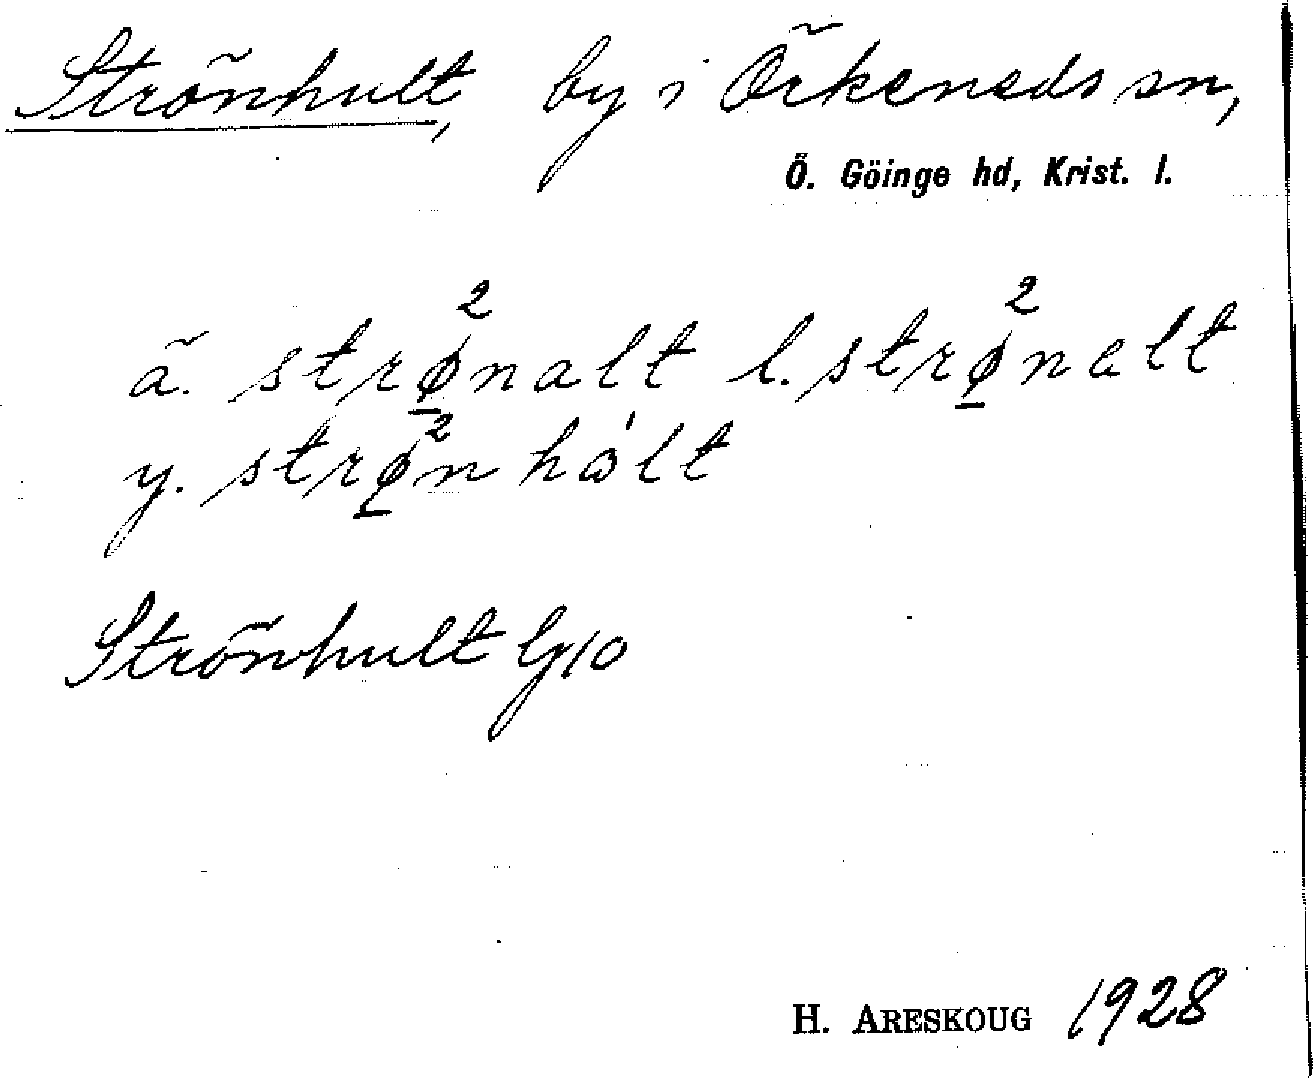 Strönhult, by i Örkeneds sn,
Ö. Göinge hd, Krist. l.
ä. strø̲²nalt l. strø̲²nelt
y. strø̲²nhålt
Strönhult G10
H. ARESKOUG 1928